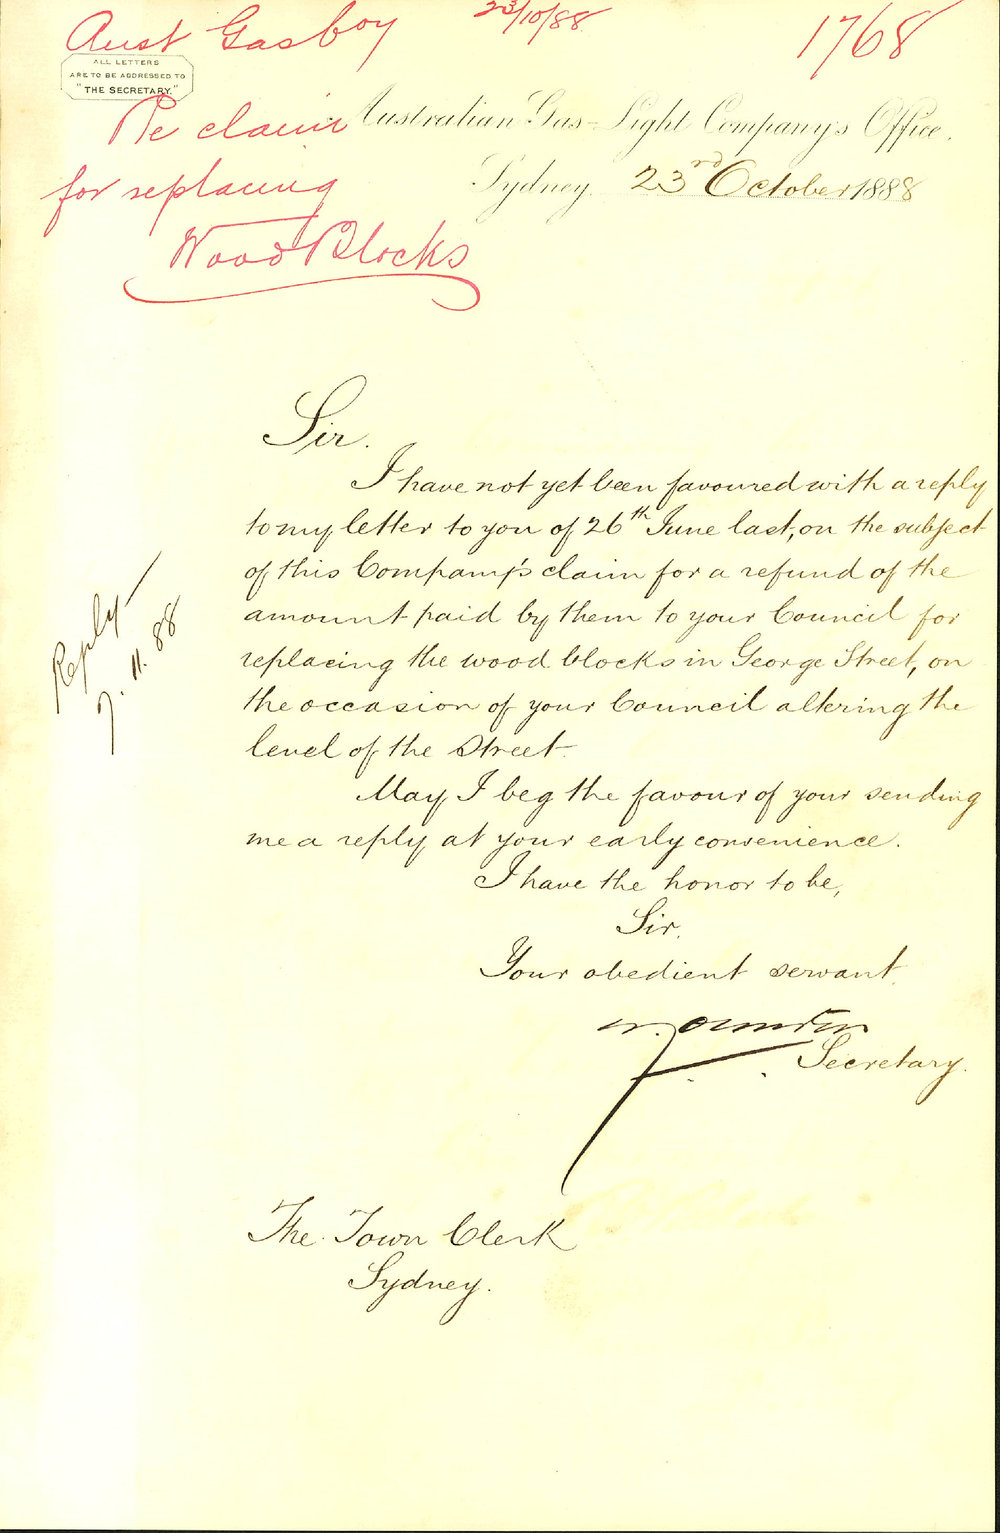 Aust Gas Coy
23/10/88
1768
ALL LETTERS
ARE TO BE ADDRESSED TO
"THE SECRETARY."
Re claim
for replacing
Wood Blocks
Australian Gas-Light Company's Office.
Sydney. 23rd October 1888
Sir.
I have not yet been favoured with a reply
to my letter to you of 26th June last, on the subject
of this Company's claim for a refund of the
amount paid by them to your Council for
replacing the wood blocks in George Street, on
the occasion of your Council altering the
level of the Street.
May I beg the favour of your sending
me a reply at your early convenience.
I have the honor to be,
Sir,
Your obedient servant.
Secretary.
The Town Clerk
Sydney.
Reply
7.11.88